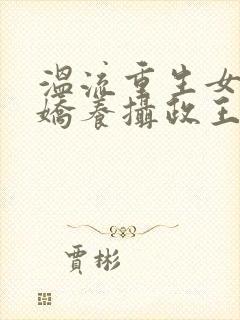 溫流重生女
嬌養攝政王
賈彬